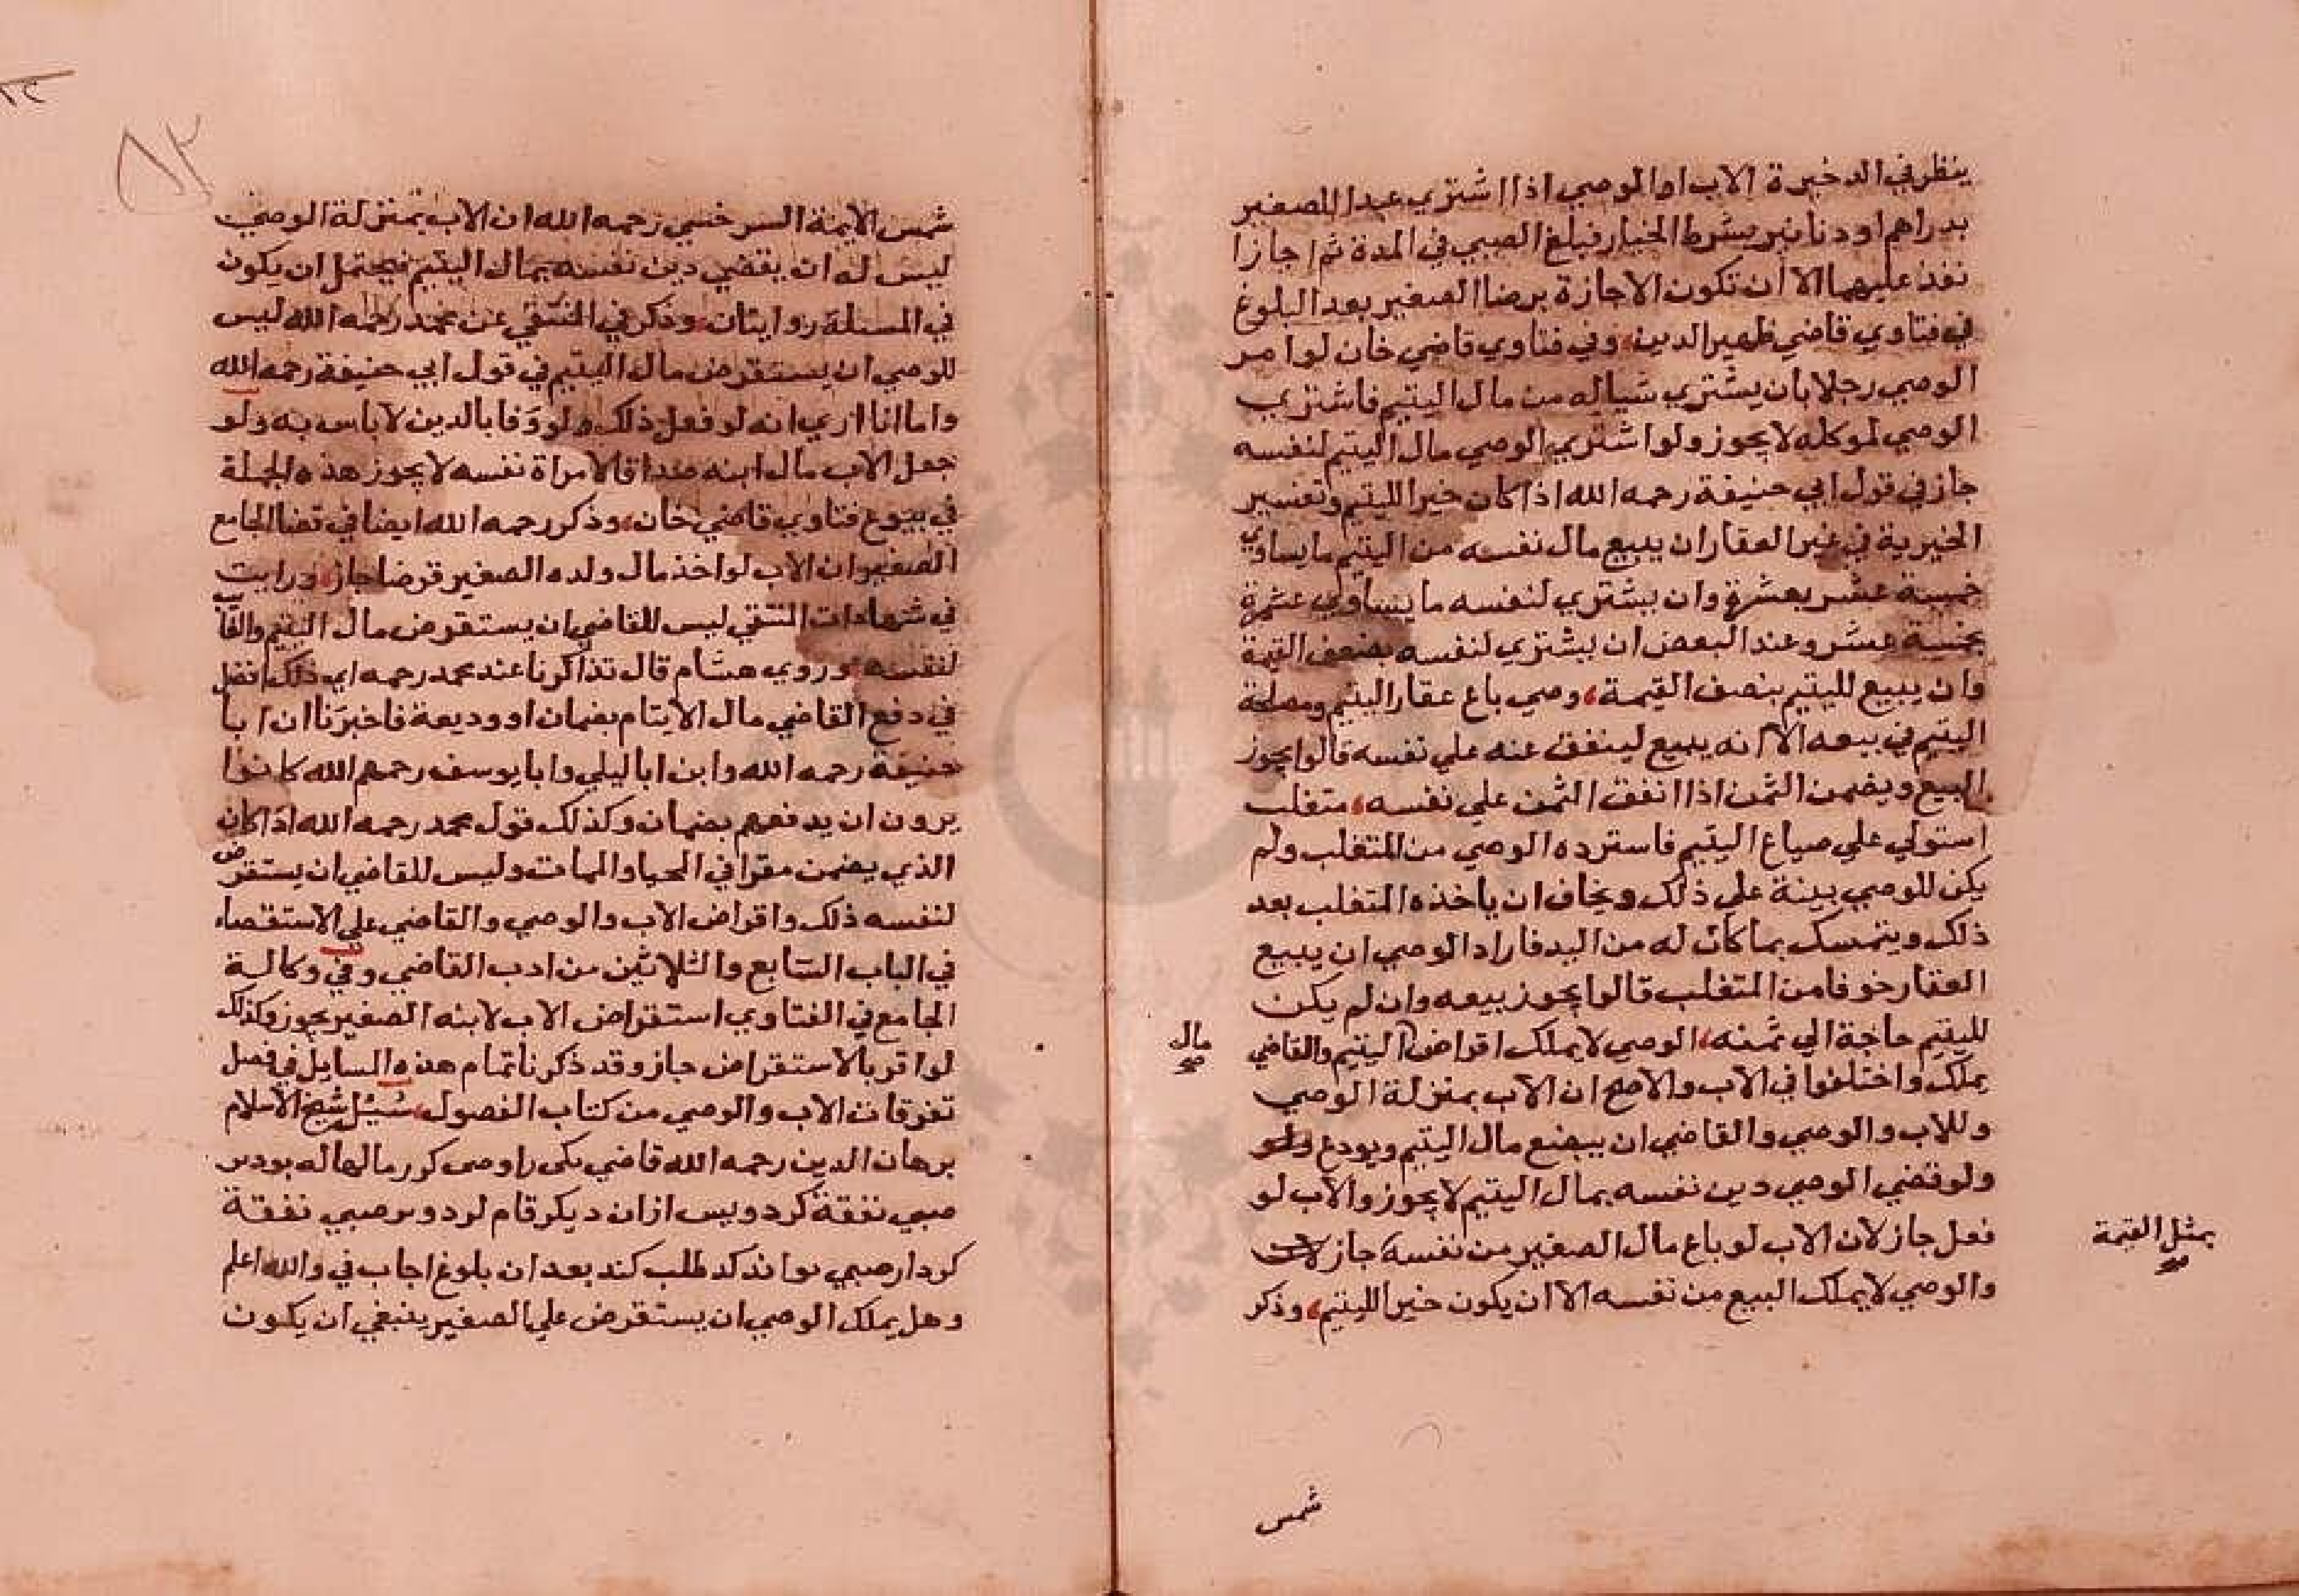 ينظر في الدخيرة الاب او الوصي اذا اشتري عبدا للصغير
بدراهم او دنانير بشرط الخيار فبلغ الصبي في المدة ثم اجازا
نفذ عليهما الا ان تكون الاجازة برضا الصغير بعد البلوغ
في فتاوي قاضي ظهير الدين، وفي فتاوي قاضي خان لو امر
الوصي رجلا بان يشتري شياله من مال اليتيم فاشتري
الوصي لموكله لا يجوز ولو اشتري الوصي مال اليتيم لنفسه
جاز في قول ابي حنيفة رحمه الله اذا كان خيرا لليتيم وتفسير
الخيرية في غير العقار ان يبيع مال نفسه من اليتيم ما يساوي
خمسة عشر بعشرة وان يشتري لنفسه ما يساوي عشرة
بخمسة عشر وعند البعض ان يشتري لنفسه بضعف القيمة
وان يبيع لليتيم بنصف القيمة، وصي باع عقار اليتيم ومصلحة
اليتيم في بيعه الا انه يبيع لينفق عنه علي نفسه قالوا يجوز
البيع ويضمن الثمن اذا انفق الثمن علي نفسه، متغلب
استولي علي ضياع اليتيم فاسترده الوصي من المتغلب ولم
يكن للوصي بينة علي ذلك ويخاف ان ياخذه المتغلب بعد
ذلك ويتمسك بما كان له من اليد فاراد الوصي ان يبيع
العقار خوفا من المتغلب قالوا يجوز بيعه وان لم يكن
لليتيم حاجة الي ثمنه، الوصي لا يملك اقراض اليتيم والقاضي
مال
صح
يملك واختلفوا في الاب والاصح ان الاب بمنزلة الوصي
وللاب والوصي والقاضي ان يبضع مال اليتيم ويودع
ولو قضي الوصي دين نفسه بمال اليتيم لا يجوز والاب لو
فعل جاز لان الاب لو باع مال الصغير من نفسه جاز
بمثل القيمة
صح
والوصي لا يملك البيع من نفسه الا ان يكون خيرا لليتيم، وذكر
شمس
٨٣
شمس الايمة السرخسي رحمه الله ان الاب بمنزلة الوصي
ليس له ان يقضي دين نفسه بمال اليتيم فيحتمل ان يكون
في المسئلة روايتان، وذكر في المنتقي عن محمد رحمه الله ليس
للوصي ان يستقرض مال اليتيم في قول ابي حنيفة رحمه الله
واما انا اري انه لو فعل ذلك وله وفا بالدين لا باس به ولو
جعل الاب مال ابنه صداقا لامراة نفسه لا يجوز هذه الجملة
في بيوع فتاوي قاضي خان، وذكر رحمه الله ايضا في قضا الجامع
الصغير ان الاب لو اخذ مال ولده الصغير قرضا جاز، ورايت
في شهادات المنتقي ليس للقاضي ان يستقرض مال اليتيم والغايب
لنفسه، وروي هشام قال تذاكرنا عند محمد رحمه اي ذلك افضل
في دفع القاضي مال الايتام بضمان او وديعة فاخبرنا ان ابا
حنيفة رحمه الله وابن ابا ليلي وابا يوسف رحمهم الله كانوا
يرون ان يدفعهم بضمان وكذلك قول محمد رحمه الله اذا كان
الذي يضمن مقرا في المحيا والممات وليس للقاضي ان يستقرض
لنفسه ذلك واقراض الاب والوصي والقاضي علي الاستقصاء
في الباب السابع والثلاثين من ادب القاضي وفي وكالة
الجامع في الفتاوي استقراض الاب لابنه الصغير يجوز وكذلك
لو اقر بالاستقراض جاز وقد ذكرنا تمام هذه المسايل في فصل
تفرقات الاب والوصي من كتاب الفصول، سئل شيخ الاسلام
برهان الدين رحمه الله قاضي يكي را وصي كور مالها له بودس
صبي نفقة كرد وپس ازان ديكر قام لرد وبر صبي نفقة
كردار صبي تواند كد طلب كند بعد ان بلوغ اجاب في والله اعلم
وهل يملك الوصي ان يستقرض علي الصغير ينبغي ان يكون